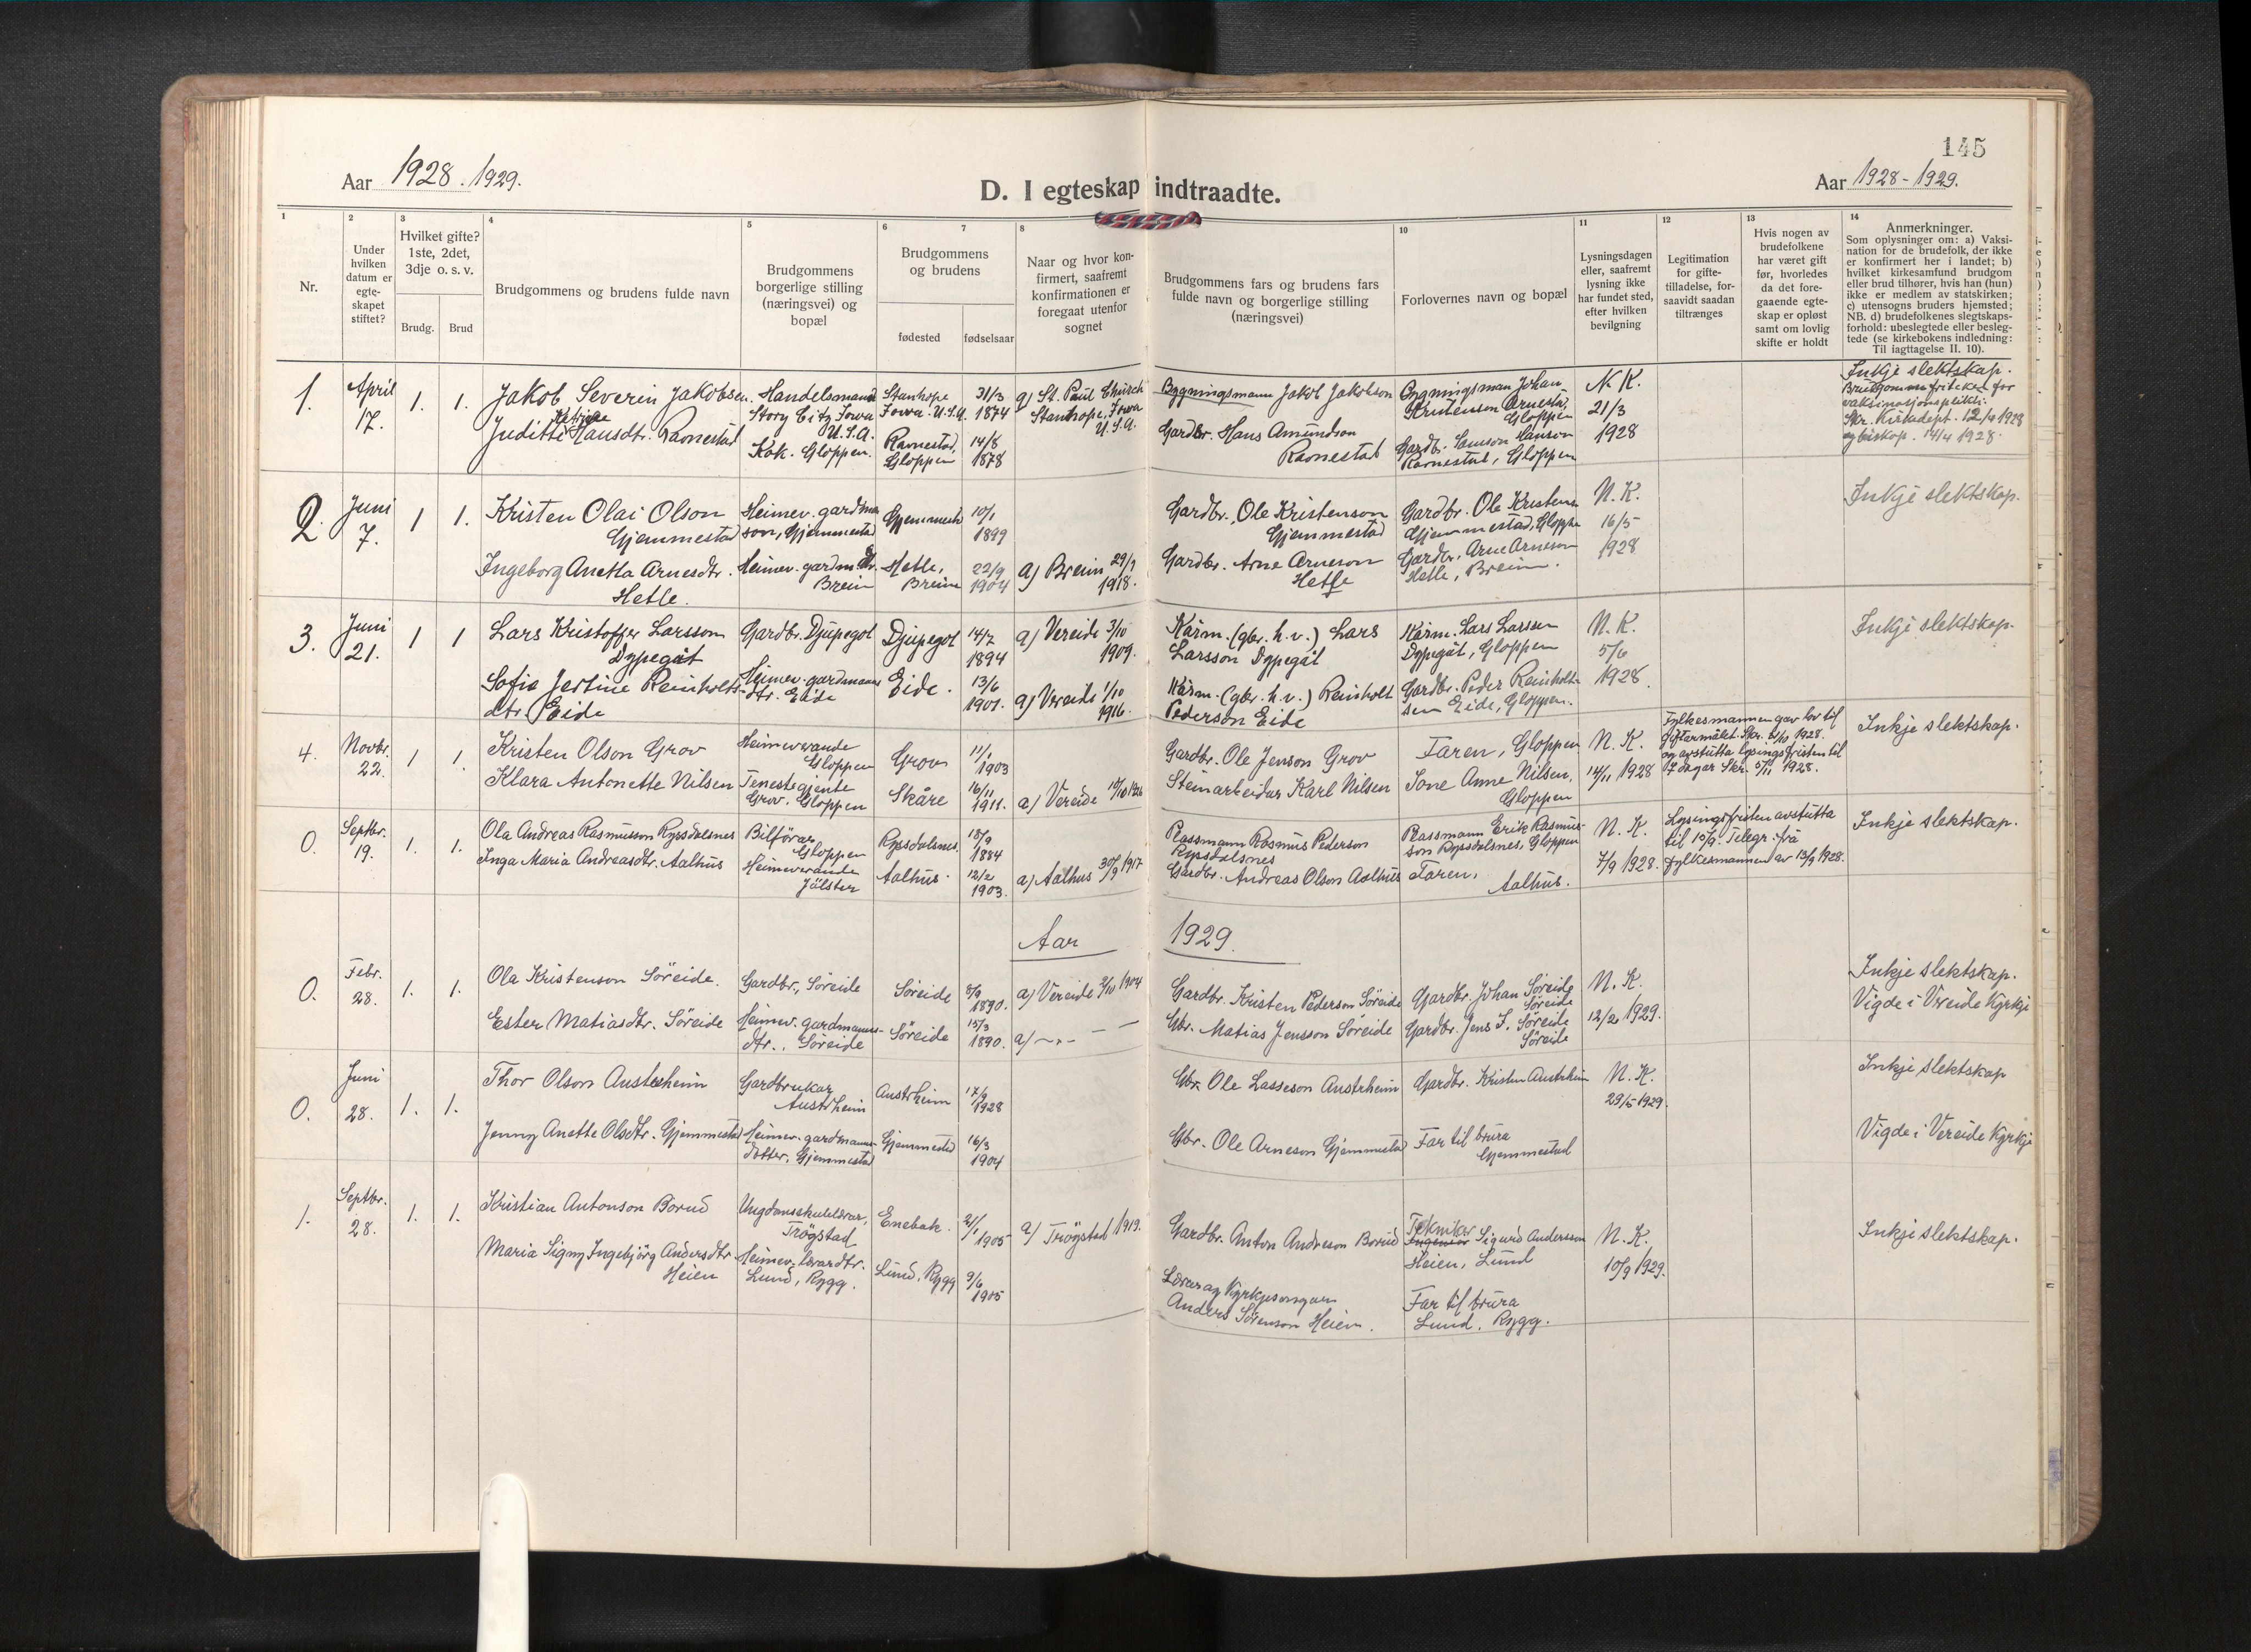 145
Aar 1928. 1929.
D. I egteskap indtraadte.
Aar 1928-1929.
1
2
3
4
5
6
7
8
10
11
12
13
14
Nr.
Under hvilken datum er egte-skapet stiftet?
Hvilket gifte? 1ste, 2det, 3dje o. s. v.
Brudg.
Brud
Brudgommens og brudens fulde navn
Brudgommens borgerlige stilling (næringsvei) og bopæl
Brudgommens og brudens
fødested
fødselsaar
Naar og hvor kon-firmert, saafremt konfirmationen er foregaat utenfor sognet
Brudgommens fars og brudens fars fulde navn og borgerlige stilling (næringsvei)
Forlovernes navn og bopæl
Lysningsdagen eller, saafremt lysning ikke har fundet sted, efter hvilken bevilgning
Legitimation for gifte-tilladelse, for-saavidt saadan tiltrænges
Hvis nogen av brudefolkene har været gift før, hvorledes da det fore-gaaende egte-skap er opløst samt om lovlig skifte er holdt
Anmerkninger.
Som oplysninger om: a) Vaksi-nation for de brudefolk, der ikke er konfirmert her i landet; b) hvilket kirkesamfund brudgom eller brud tilhører, hvis han (hun) ikke er medlem av statskirken; c) utensogns bruders hjemsted; NB. d) brudefolkenes slegtskaps-forhold: ubeslegtede eller besleg-tede (se kirkebokens indledning: Til iagttagelse II. 10).
1. April 17. 1. 1.
Jakob Severin Jakobsen.
Juditte Katrine Hansdtr. Ravnestad
Handelsmand
Story City Iowa
U.S.A.
Kok. Gloppen.
Stanhope
Iowa. U.S.A.
Ravnestad,
Gloppen
31/3
1874
14/8
1878
a) St. Paul Church
Stanhope, Iowa
U.S.A.
Bygningsmann Jakob Jakobson
Gardbr. Hans Amundson
Ravnestad
Bygningsman Johan
Kristenson Arnestd,
Gloppen
Gardbr. Samson Hanson
Ravnestad, Gloppen
N. K.
21/3
1928
Inkje slektskap.
Brudgommen friteken for
vaksinasjonsplikt.
Skr. Kirkedept. 12/4 1928
og biskop. 14/4 1928.
2. Juni 7. 1 1.
Kristen Olai Olson
Gjemmestad
Ingeborg Anetta Arnesdtr.
Hetle.
Heimev. gardma
son, Gjemmestad
Heimev. gardm dtr.
Breim
Gjemmestd
Hetle,
Breim
10/1
1899
22/9
1904
a) Breim 29/9
1918.
Gardbr. Ole Kristenson
Gjemmestad
Gardbr. Arne Arneson
Hetle
Gardbr. Ole Kristens
Gjemmestad, Gloppe
Gardbr. Arne Arneson
Hetle, Breim.
N. K.
16/5
1928
Inkje slektskap.
3. Juni 21. 1 1
Lars Kristoffer Larsson
Dypegåt
Sofie Jertine Reinholts-
dtr. Eide
Gardbr. Djupegot
Heimev. gardmanns
dtr. Eide
Djupegot
Eide.
14/2
1894
13/6
1901.
a) Vereide 3/10
1909.
a) Vereide 1/10
1916.
Kårm. (gbr. h. v.) Lars
Larsson Dypegåt
Kårm. (gbr. h. v.) Reinholt
Pederson Eide
Kårm. Lars Larssen
Dypegåt, Gloppen
Gardbr. Peder Reinholt-
sen Eide, Gloppen.
N. K.
5/6
1928.
Inkje slektskap.
4. Novbr. 22. 1 1.
Kristen Olson Grov
Klara Antonette Nilsen
Heimeverande
Gloppen
Tenestegjente
Grov, Gloppen
Grov
Skåre
11/1
1903
16/11
1911.
a) Vereide
Gardbr. Ole Jenson Grov
Steinarbeidar Karl Nilsen
Faren, Gloppen
Tone Anne Nilsen,
Gloppen
N. K.
14/11 1928
Fylkesmannen gav lov til
giftarmålet. Skr. 1928.
og avstutta lysingsfristen til
7 dagar Skr. 5/11 1928.
Inkje slektskap.
0. Septbr. 19. 1. 1.
Ola Andreas Rasmusson Ryssdalsnes
Inga Maria Andreasdtr. Aalhus
Bilförar
Gloppen
Heimeverande
Jölster
Ryssdalsnes.
Aalhus.
18/9
1884
12/2
1903.
a) Aalhus 30/9 1917
Plassmann Rasmus Pederson
Ryssdalsnes
Gardbr. Andreas Olson Aalhus
Plassmann Erik Rasmus-
son Ryssdalsnes, Gloppen
Faren,
Aalhus.
N. K.
7/9 1928.
Lysingsfristen avstutta
til 15/9. Telegr. frå
fylkesmannen av 13/9 1928.
Inkje slektskap.
Aar 1929.
0. Febr. 28. 1. 1.
Ola Kristenson Söreide.
Ester Matiasdtr. Söreide
Gardbr., Söreide
Heimev. gardmanns-
dtr.. Söreide
Söreide
Söreide
8/9
1890.
15/3
1890.
a) Vereide 2/10 1904
a) –„– – –
Gardbr. Kristen Pederson Söreide
Gbr. Matias Jensson Söreide
Gardbr. Johan Söreide
Söreide
Gardbr. Jens J. Söreide
Söreide
N. K.
12/2 1929.
Inkje slektskap.
Vigde i Vereide Kyrkje
0. Juni 28. 1. 1.
Thor Olson Austrheim
Jenny Anette Olsdtr. Gjemmestad
Gardbrukar
Austrheim
Heimev. gardmanns-
dotter, Gjemmestad
Austrheim
Gjemmestad
17/9
1928
16/3
1904
Gbr. Ole Lasseson Austrheim
Gbr. Ole Arneson Gjemmestad
Gardbr. Kristen Austrheim
Far til brura
Gjemmestad
N. K.
29/5 1929.
Inkje slektskap
Vigde i Vereide Kyrkje
1. Septbr. 28. 1. 1.
Kristian Antonson Borud
Maria Signy Ingebjörg Andersdtr
Heien
Ungdomsskulelærar,
Trögstad
Heimev. lærardtr.
Lund, Rygg.
Enebak.
Lund, Rygg
21/1
1905
9/6
1905
a) Trögstad 1919.
Gardbr. Anton Andreson Borud
Lærar og Kyrkjesongar
Anders Sörenson Heien.
Tekniker
Sigurd Andersson
Heien, Lund
Far til brura
Lund, Rygg.
N. K.
10/9 1929.
Inkje slektskap.